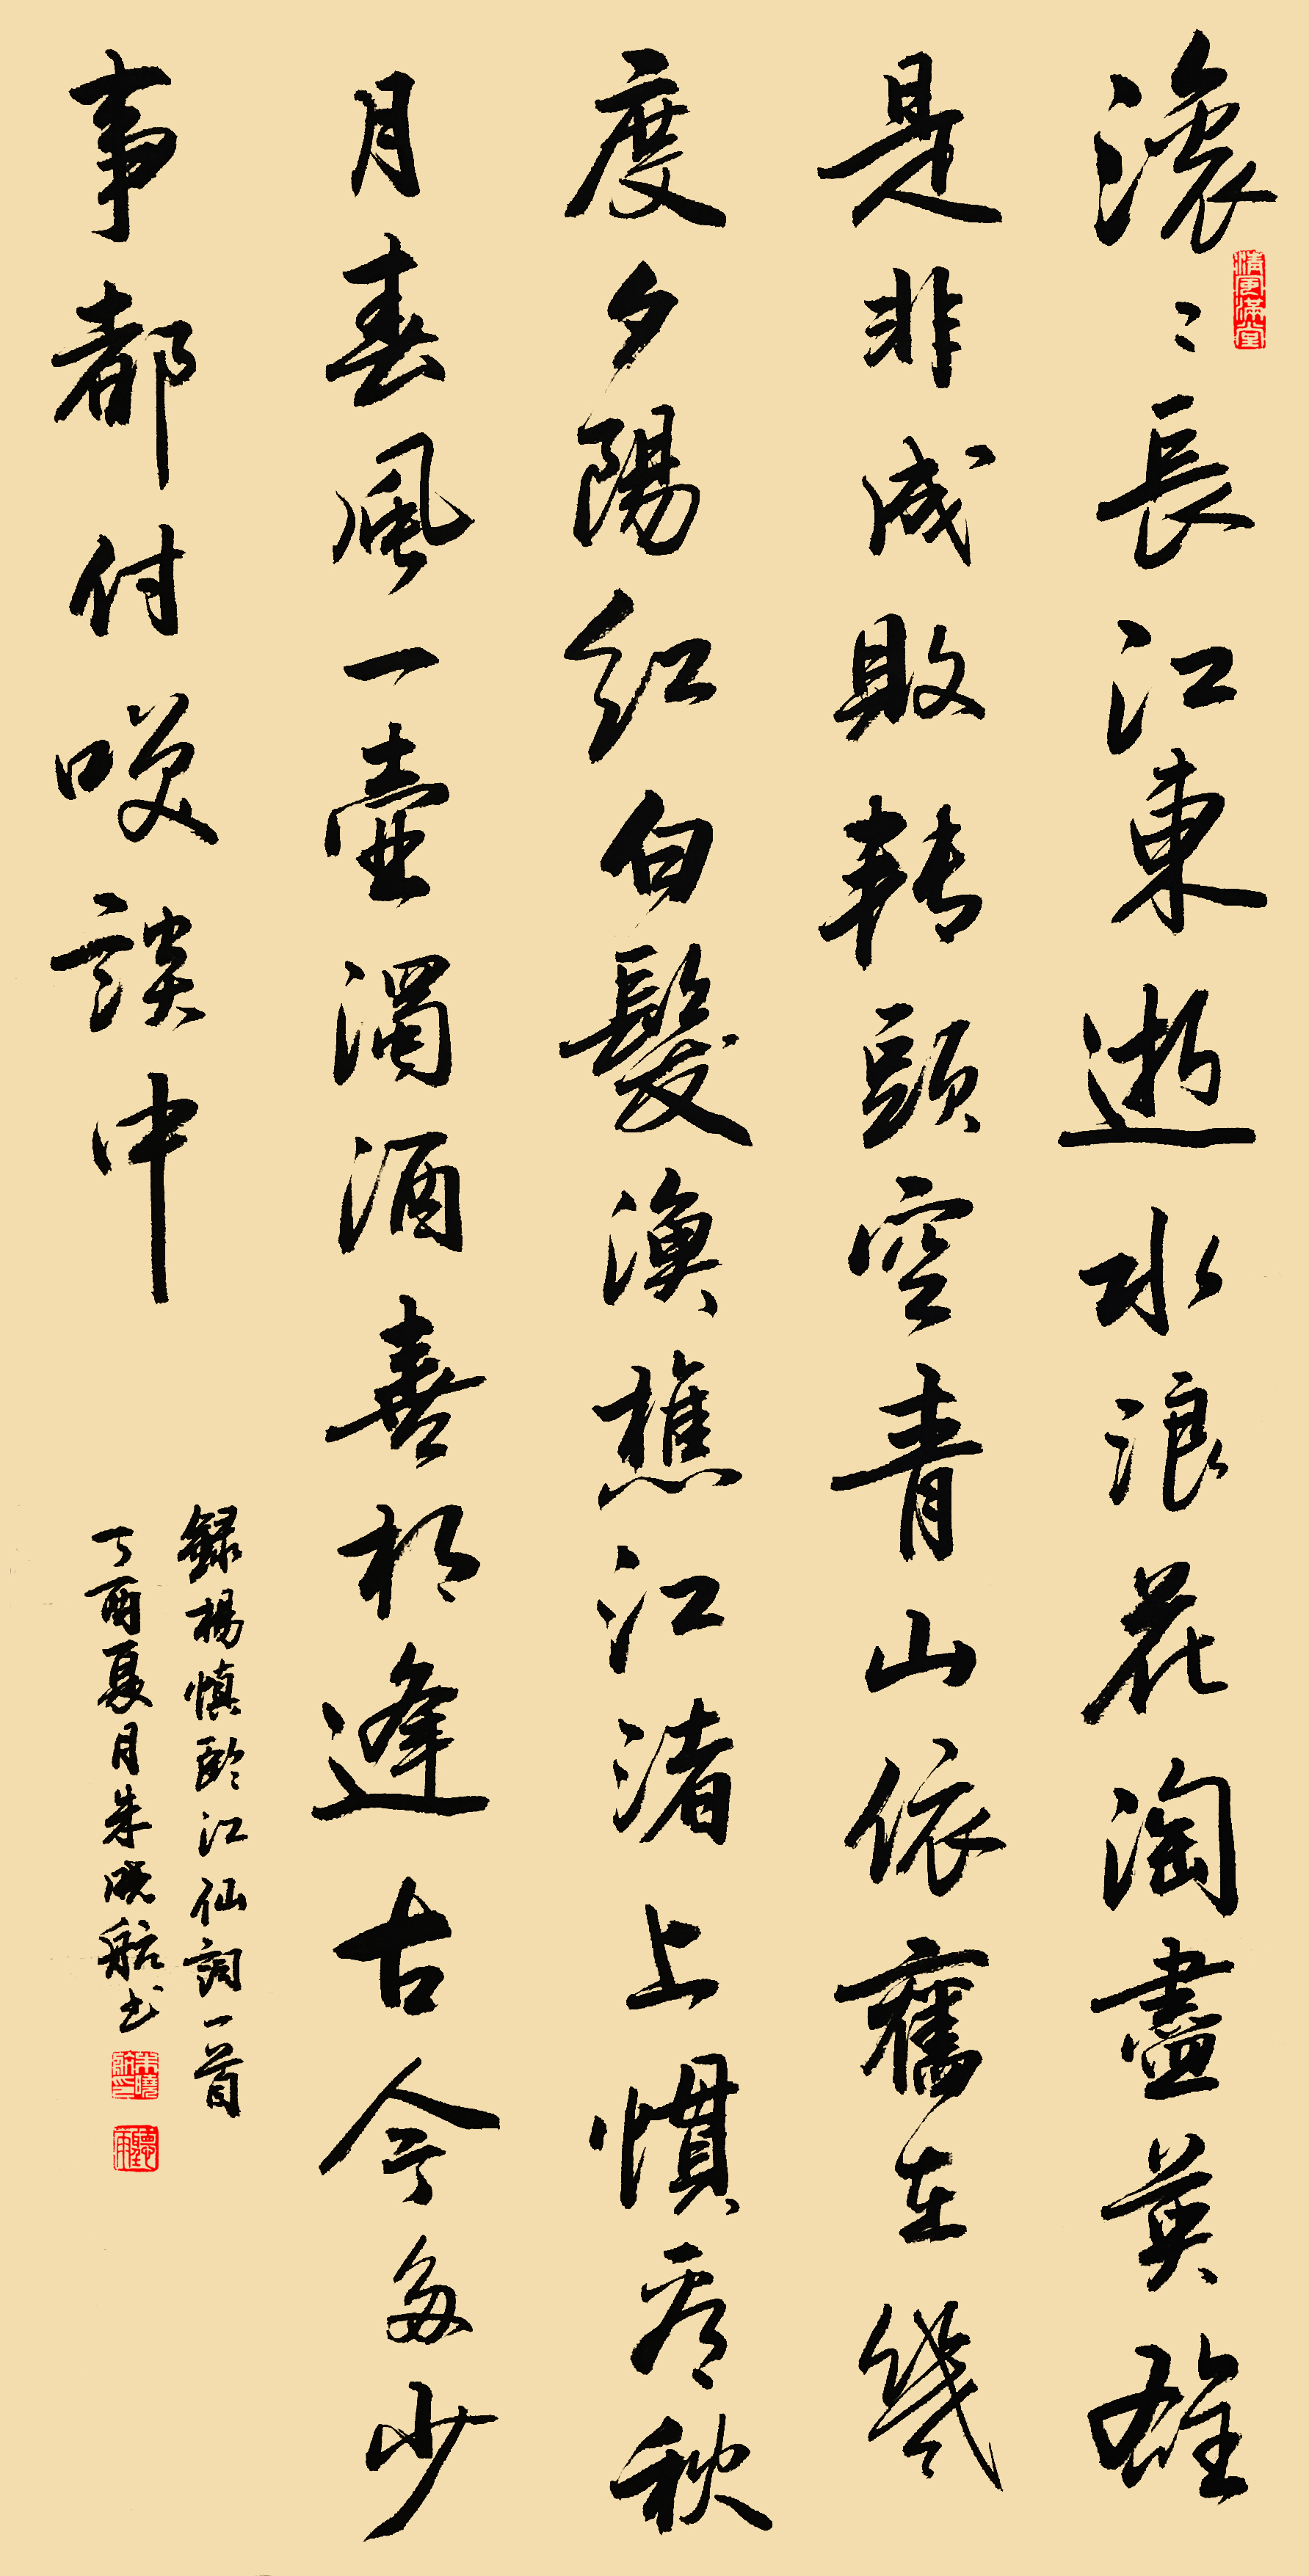 滚〻長江東逝水浪花淘盡英雄
是非成敗轉頭空青山依舊在幾
度夕陽紅白髮漁樵江渚上慣看秋
月春風一壺濁酒喜相逢古今多少
事都付笑談中
錄楊慎臨江仙詞一首
丁酉夏月朱曉航书
清風滿堂
朱曉航印